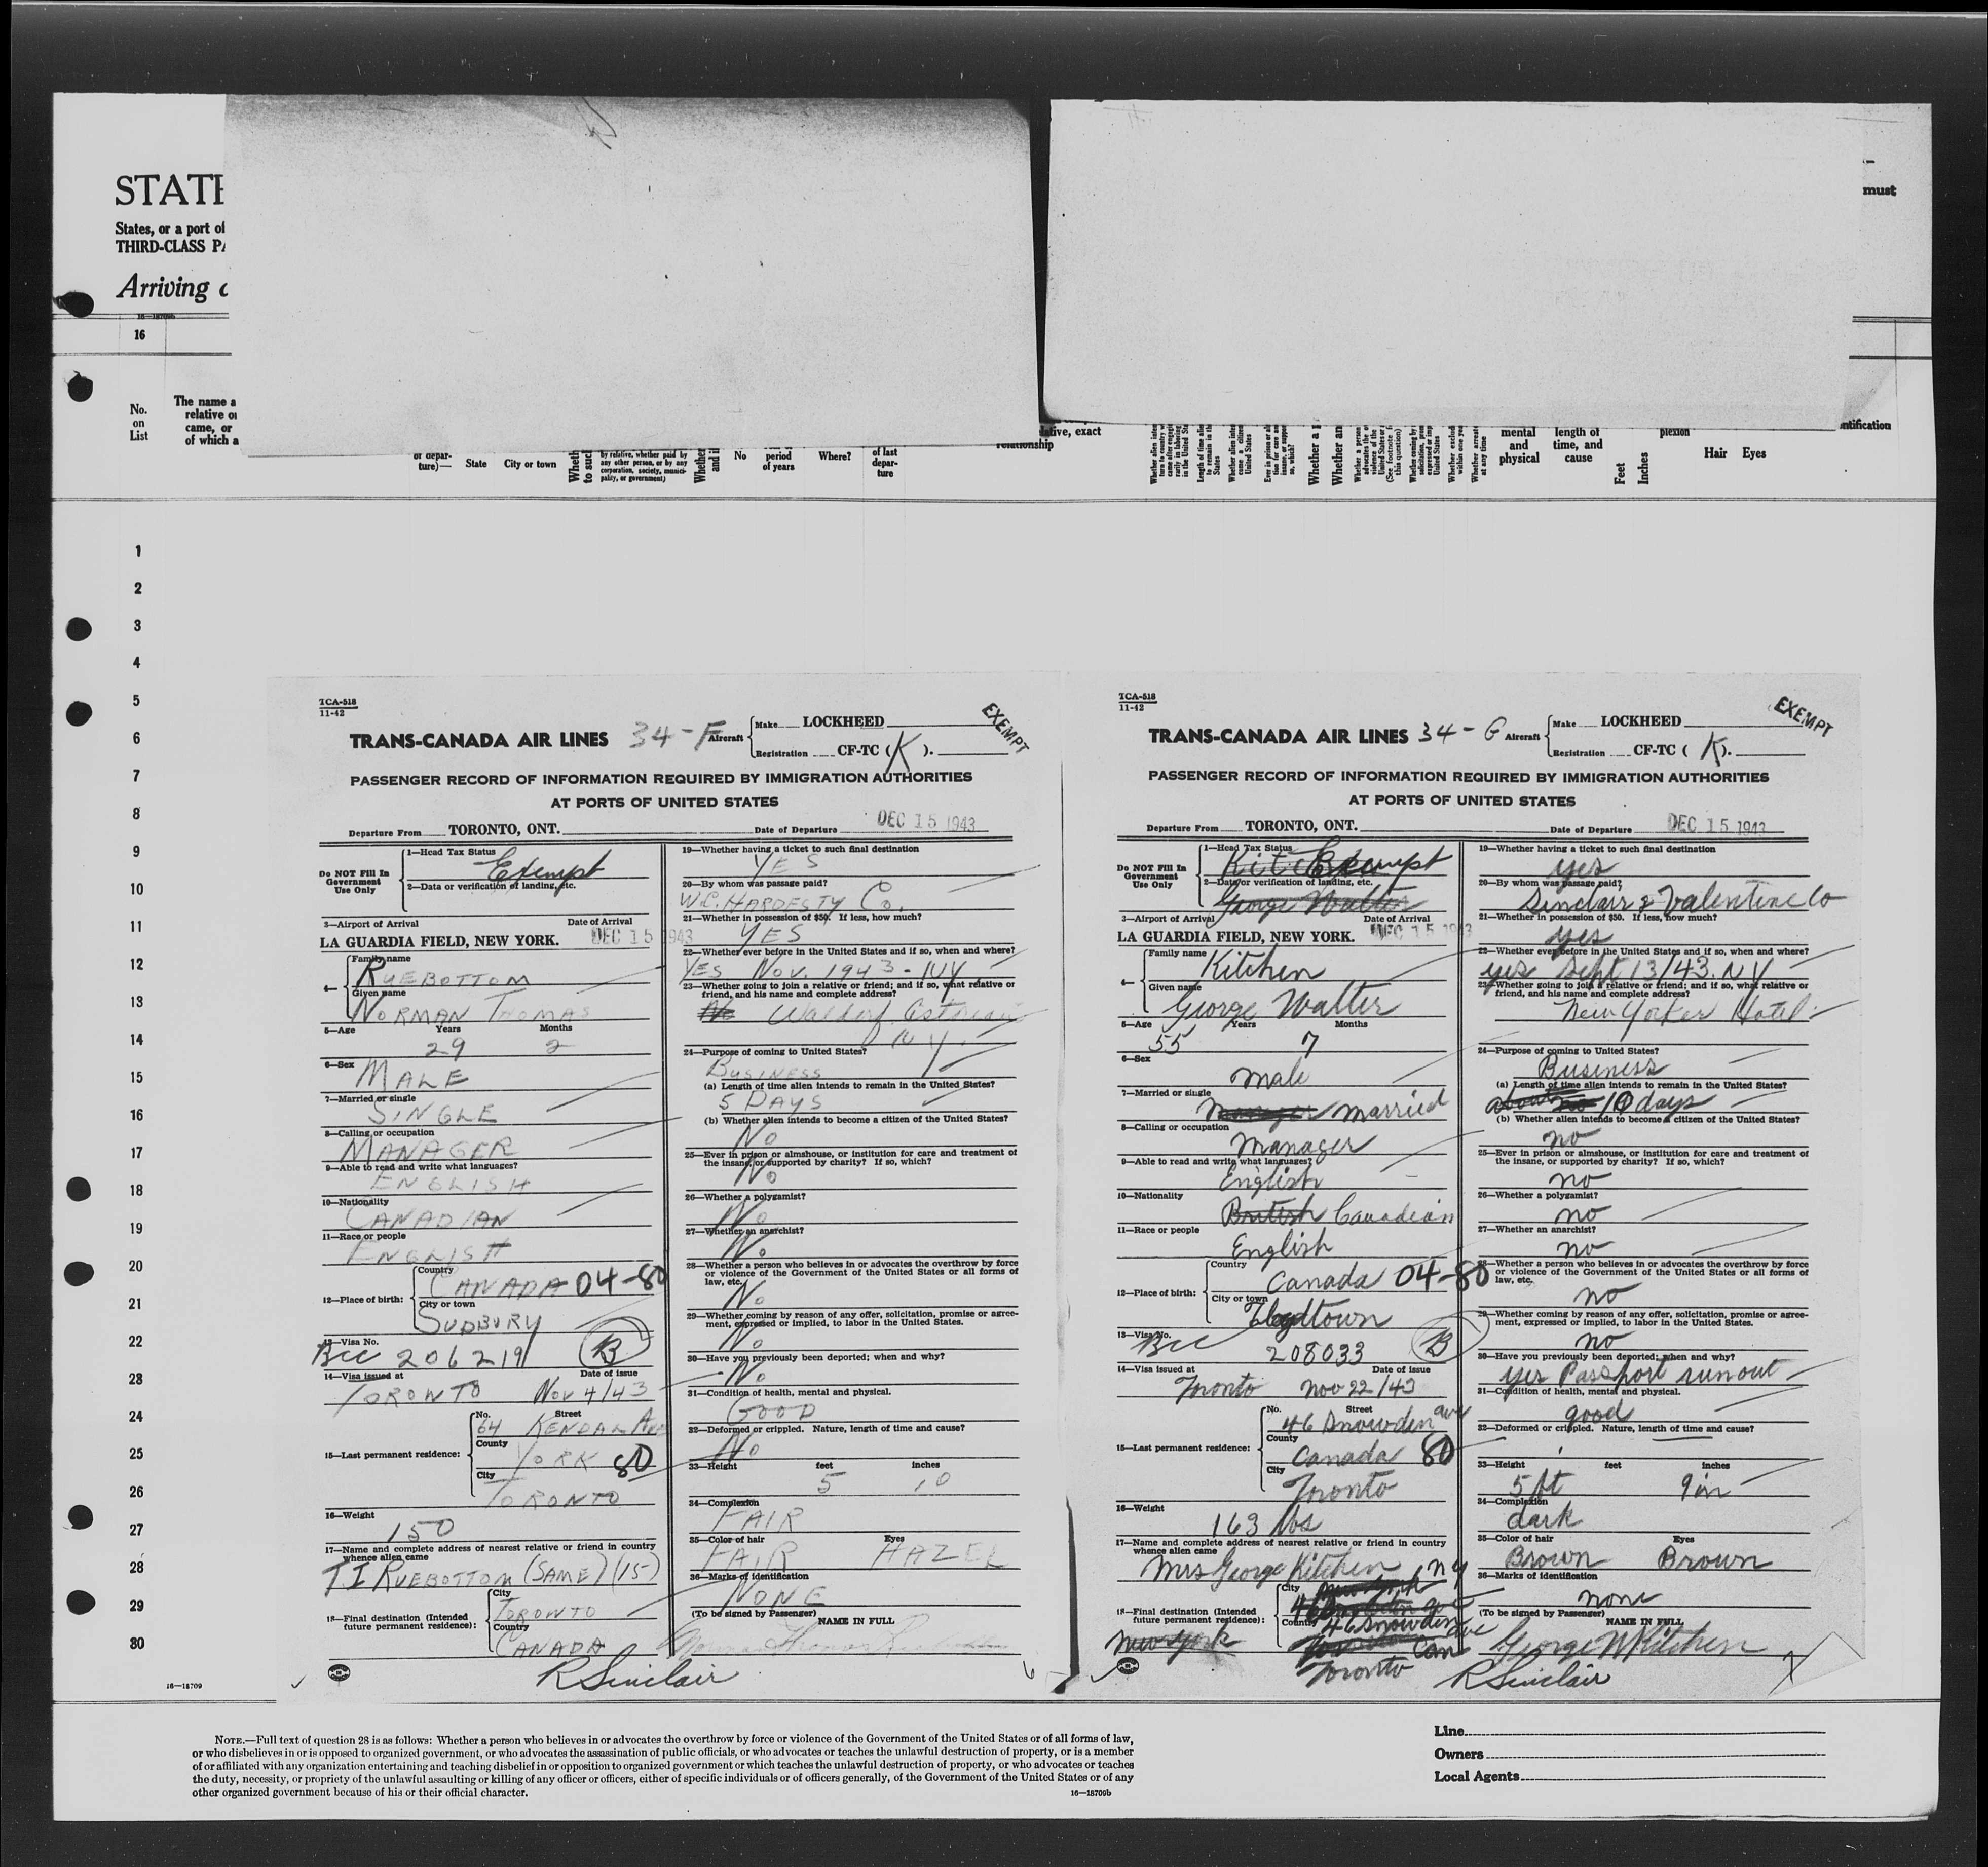 STATE
States, or a port of
THIRD-CLASS PA
Arriving
16—18709b
16
must
No.
on
List
The name a
relative or
came, or
of which a
of depar-
ture)—
State
City or town
Wheth
to suc
by relative, whether paid by
any other person, or by any
corporation, society, munici-
pality, or government)
Whether
and i
No
period
of years
Where?
of last
depar-
ture
lative, exact
relationship
Whether a
Whether an
mental
and
physical
length of
time, and
cause
Feet
Inches
plexion
Hair
Eyes
ntification
1
2
3
4
5
6
7
8
9
10
11
12
13
14
15
16
17
18
19
20
21
22
23
24
25
26
27
28
29
30
TCA-518
11-42
EXEMPT
TRANS-CANADA AIR LINES 34-F Aircraft
Make LOCKHEED
Registration CF-TC (K).
PASSENGER RECORD OF INFORMATION REQUIRED BY IMMIGRATION AUTHORITIES
AT PORTS OF UNITED STATES
Departure From TORONTO, ONT. Date of Departure DEC 15 1943
Do NOT Fill In
Government
Use Only
1—Head Tax Status
Exempt
2—Data or verification of landing, etc.
3—Airport of Arrival Date of Arrival
LA GUARDIA FIELD, NEW YORK. DEC 15 1943
4—
Family name
RUEBOTTOM
Given name
NORMAN THOMAS
5—Age Years Months
29 2
6—Sex
MALE
7—Married or single
SINGLE
8—Calling or occupation
MANAGER
9—Able to read and write what languages?
ENGLISH
10—Nationality
CANADIAN
11—Race or people
ENGLISH
12—Place of birth:
Country
CANADA 04-80
City or town
SUDBURY
13—Visa No.
BCC 206219 B
14—Visa issued at Date of issue
TORONTO Nov 4/43
15—Last permanent residence:
No. Street
64 KENDAL AVE
County
YORK 80
City
TORONTO
16—Weight
150
17—Name and complete address of nearest relative or friend in country
whence alien came
T.I RUEBOTTOM (SAME) (15)
18—Final destination (Intended
future permanent residence):
City
TORONTO
Country
CANADA
19—Whether having a ticket to such final destination
YES
20—By whom was passage paid?
W.C. HARDESTY Co.
21—Whether in possession of $50. If less, how much?
YES
22—Whether ever before in the United States and if so, when and where?
YES Nov. 1943 - NY
23—Whether going to join a relative or friend; and if so, what relative or
friend, and his name and complete address?
No Waldorf Astoria
N Y.
24—Purpose of coming to United States?
BUSINESS
(a) Length of time alien intends to remain in the United States?
5 DAYS
(b) Whether alien intends to become a citizen of the United States?
No
25—Ever in prison or almshouse, or institution for care and treatment of
the insane, or supported by charity? If so, which?
No
26—Whether a polygamist?
No
27—Whether an anarchist?
No
28—Whether a person who believes in or advocates the overthrow by force
or violence of the Government of the United States or all forms of
law, etc.
No
29—Whether coming by reason of any offer, solicitation, promise or agree-
ment, expressed or implied, to labor in the United States.
No
30—Have you previously been deported; when and why?
No
31—Condition of health, mental and physical.
GOOD
32—Deformed or crippled. Nature, length of time and cause?
No
33—Height feet inches
5 10
34—Complexion
FAIR
35—Color of hair Eyes
FAIR HAZEL
36—Marks of identification
NONE
(To be signed by Passenger) NAME IN FULL
Norman Thomas Ruebottom
R Sinclair
TCA-518
11-42
EXEMPT
TRANS-CANADA AIR LINES 34-G Aircraft
Make LOCKHEED
Registration CF-TC (K).
PASSENGER RECORD OF INFORMATION REQUIRED BY IMMIGRATION AUTHORITIES
AT PORTS OF UNITED STATES
Departure From TORONTO, ONT. Date of Departure DEC 15 1943
Do NOT Fill In
Government
Use Only
1—Head Tax Status
Exempt
2—Data or verification of landing, etc.
George Walter
3—Airport of Arrival Date of Arrival
LA GUARDIA FIELD, NEW YORK. DEC 15 1943
4—
Family name
Kitchen
Given name
George Walter
5—Age Years Months
55 7
6—Sex
male
7—Married or single
Manager married
8—Calling or occupation
Manager
9—Able to read and write what languages?
English
10—Nationality
British Canadian
11—Race or people
English
12—Place of birth:
Country
Canada 04-80
City or town
Lloydtown
13—Visa No.
BCC 208033 B
14—Visa issued at Date of issue
Toronto Nov 22/43
15—Last permanent residence:
No. Street
46 Snowden ave
County
Canada 80
City
Toronto
16—Weight
163 lbs
17—Name and complete address of nearest relative or friend in country
whence alien came
Mrs George Kitchen
18—Final destination (Intended
future permanent residence):
City
N Y
Country
46 Snowden ave
New York
Can
Toronto
19—Whether having a ticket to such final destination
yes
20—By whom was passage paid?
Sinclair & Valentine Co
21—Whether in possession of $50. If less, how much?
yes
22—Whether ever before in the United States and if so, when and where?
yes Sept 13/43. NY
23—Whether going to join a relative or friend; and if so, what relative or
friend, and his name and complete address?
New Yorker Hotel
24—Purpose of coming to United States?
Business
(a) Length of time alien intends to remain in the United States?
about 10 days
(b) Whether alien intends to become a citizen of the United States?
no
25—Ever in prison or almshouse, or institution for care and treatment of
the insane, or supported by charity? If so, which?
no
26—Whether a polygamist?
no
27—Whether an anarchist?
no
28—Whether a person who believes in or advocates the overthrow by force
or violence of the Government of the United States or all forms of
law, etc.
no
29—Whether coming by reason of any offer, solicitation, promise or agree-
ment, expressed or implied, to labor in the United States.
no
30—Have you previously been deported; when and why?
yes Passport run out
31—Condition of health, mental and physical.
good
32—Deformed or crippled. Nature, length of time and cause?
33—Height feet inches
5 ft 9 in
34—Complexion
dark
35—Color of hair Eyes
Brown Brown
36—Marks of identification
none
(To be signed by Passenger) NAME IN FULL
George W Kitchen
R Sinclair
16—18709
NOTE.—Full text of question 28 is as follows: Whether a person who believes in or advocates the overthrow by force or violence of the Government of the United States or of all forms of law,
or who disbelieves in or is opposed to organized government, or who advocates the assassination of public officials, or who advocates or teaches the unlawful destruction of property, or is a member
of or affiliated with any organization entertaining and teaching disbelief in or opposition to organized government or which teaches the unlawful destruction of property, or who advocates or teaches
the duty, necessity, or propriety of the unlawful assaulting or killing of any officer or officers, either of specific individuals or of officers generally, of the Government of the United States or of any
other organized government because of his or their official character.
16—18709b
Line
Owners
Local Agents